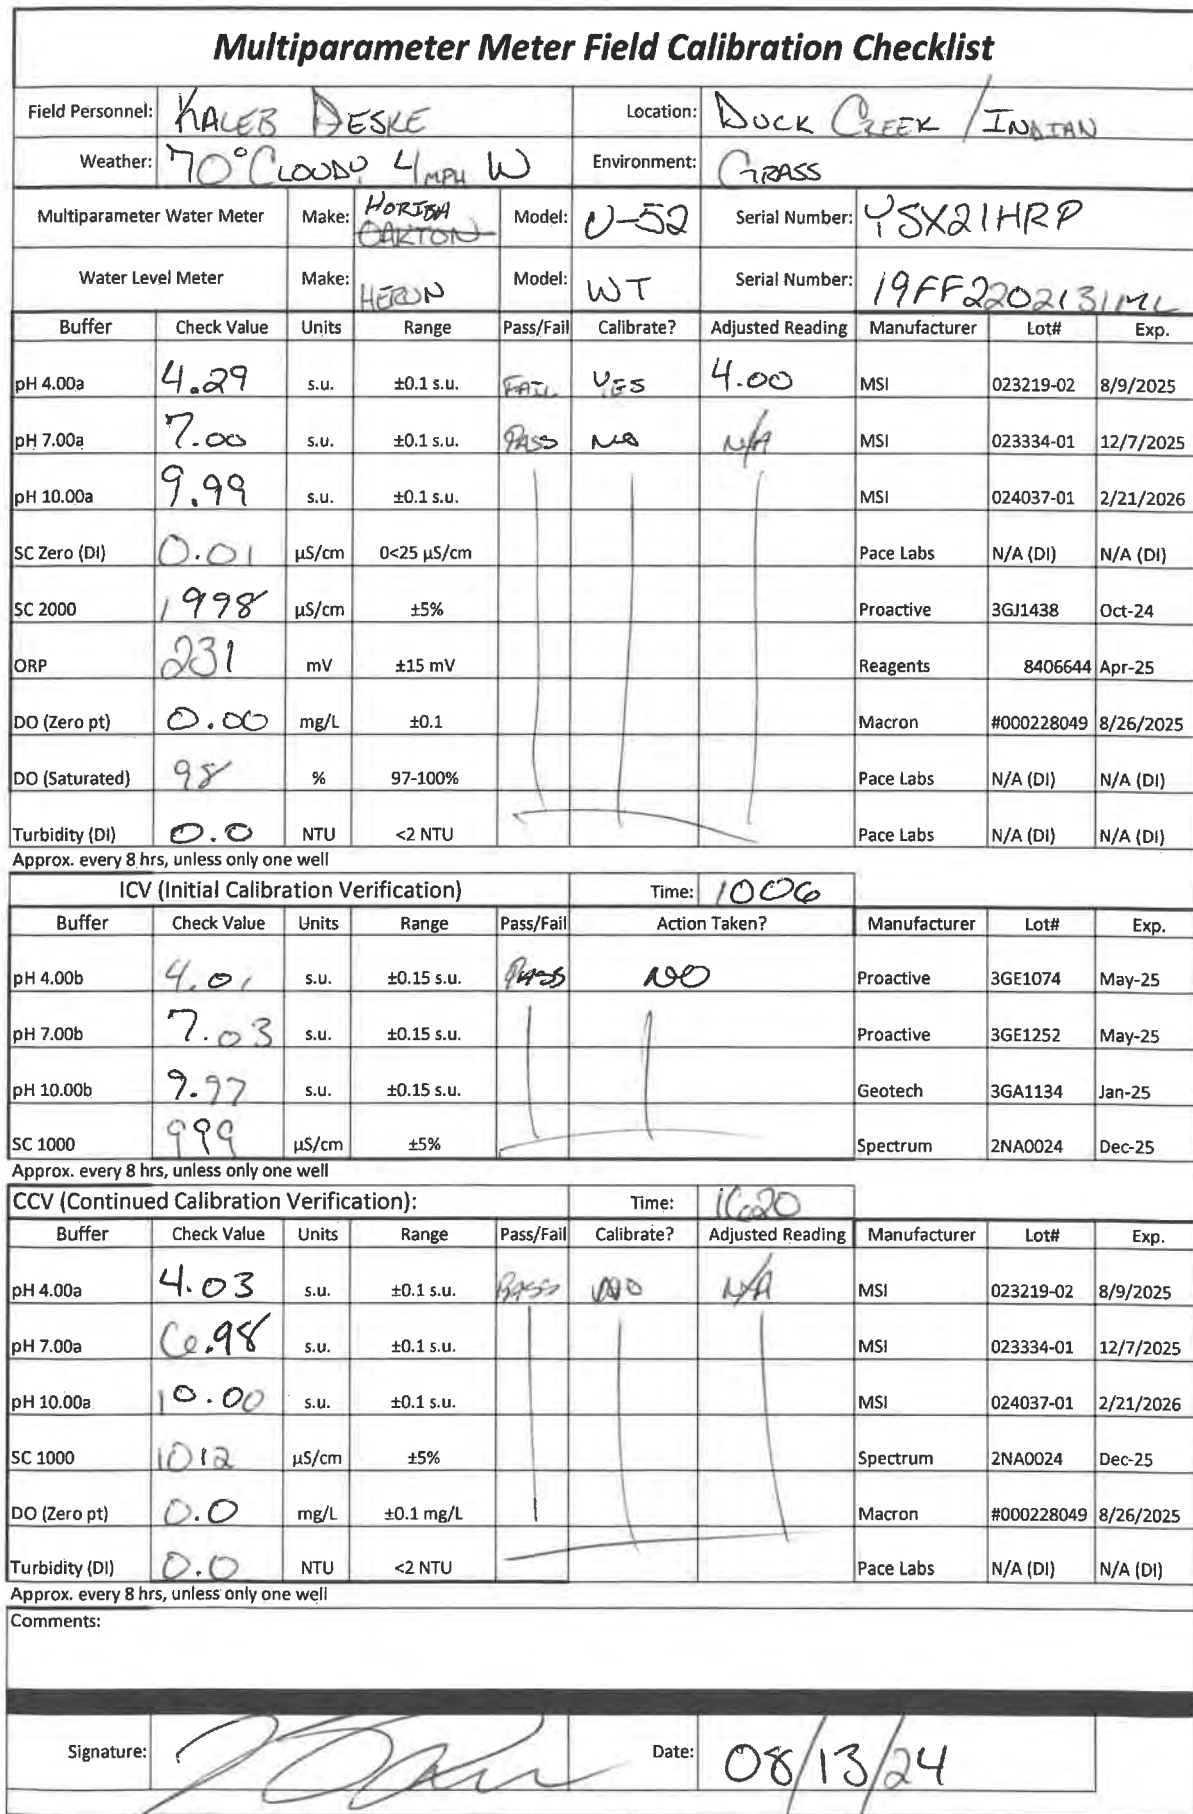 Multiparameter Meter Field Calibration Checklist
Field Personnel: KALEB DESKE Location: DUCK CREEK / INDIAN
Weather: 70° CLOUDY 4 MPH W Environment: GRASS
Multiparameter Water Meter Make: HORIBA OAKTON Model: U-52 Serial Number: YSX21HRP
Water Level Meter Make: HERON Model: WT Serial Number: 19FF2202131ML
Buffer Check Value Units Range Pass/Fail Calibrate? Adjusted Reading Manufacturer Lot# Exp.
pH 4.00a 4.29 s.u. ±0.1 s.u. FAIL YES 4.00 MSI 023219-02 8/9/2025
pH 7.00a 7.00 s.u. ±0.1 s.u. PASS NO N/A MSI 023334-01 12/7/2025
pH 10.00a 9.99 s.u. ±0.1 s.u. MSI 024037-01 2/21/2026
SC Zero (DI) 0.01 µS/cm 0<25 µS/cm Pace Labs N/A (DI) N/A (DI)
SC 2000 1998 µS/cm ±5% Proactive 3GJ1438 Oct-24
ORP 231 mV ±15 mV Reagents 8406644 Apr-25
DO (Zero pt) 0.00 mg/L ±0.1 Macron #000228049 8/26/2025
DO (Saturated) 98 % 97-100% Pace Labs N/A (DI) N/A (DI)
Turbidity (DI) 0.0 NTU <2 NTU Pace Labs N/A (DI) N/A (DI)
Approx. every 8 hrs, unless only one well
ICV (Initial Calibration Verification) Time: 1006
Buffer Check Value Units Range Pass/Fail Action Taken? Manufacturer Lot# Exp.
pH 4.00b 4.01 s.u. ±0.15 s.u. PASS NO Proactive 3GE1074 May-25
pH 7.00b 7.03 s.u. ±0.15 s.u. Proactive 3GE1252 May-25
pH 10.00b 9.97 s.u. ±0.15 s.u. Geotech 3GA1134 Jan-25
SC 1000 999 µS/cm ±5% Spectrum 2NA0024 Dec-25
Approx. every 8 hrs, unless only one well
CCV (Continued Calibration Verification): Time: 1620
Buffer Check Value Units Range Pass/Fail Calibrate? Adjusted Reading Manufacturer Lot# Exp.
pH 4.00a 4.03 s.u. ±0.1 s.u. PASS NO N/A MSI 023219-02 8/9/2025
pH 7.00a 6.98 s.u. ±0.1 s.u. MSI 023334-01 12/7/2025
pH 10.00a 10.00 s.u. ±0.1 s.u. MSI 024037-01 2/21/2026
SC 1000 1012 µS/cm ±5% Spectrum 2NA0024 Dec-25
DO (Zero pt) 0.0 mg/L ±0.1 mg/L Macron #000228049 8/26/2025
Turbidity (DI) 0.0 NTU <2 NTU Pace Labs N/A (DI) N/A (DI)
Approx. every 8 hrs, unless only one well
Comments:
Signature: Date: 08/13/24